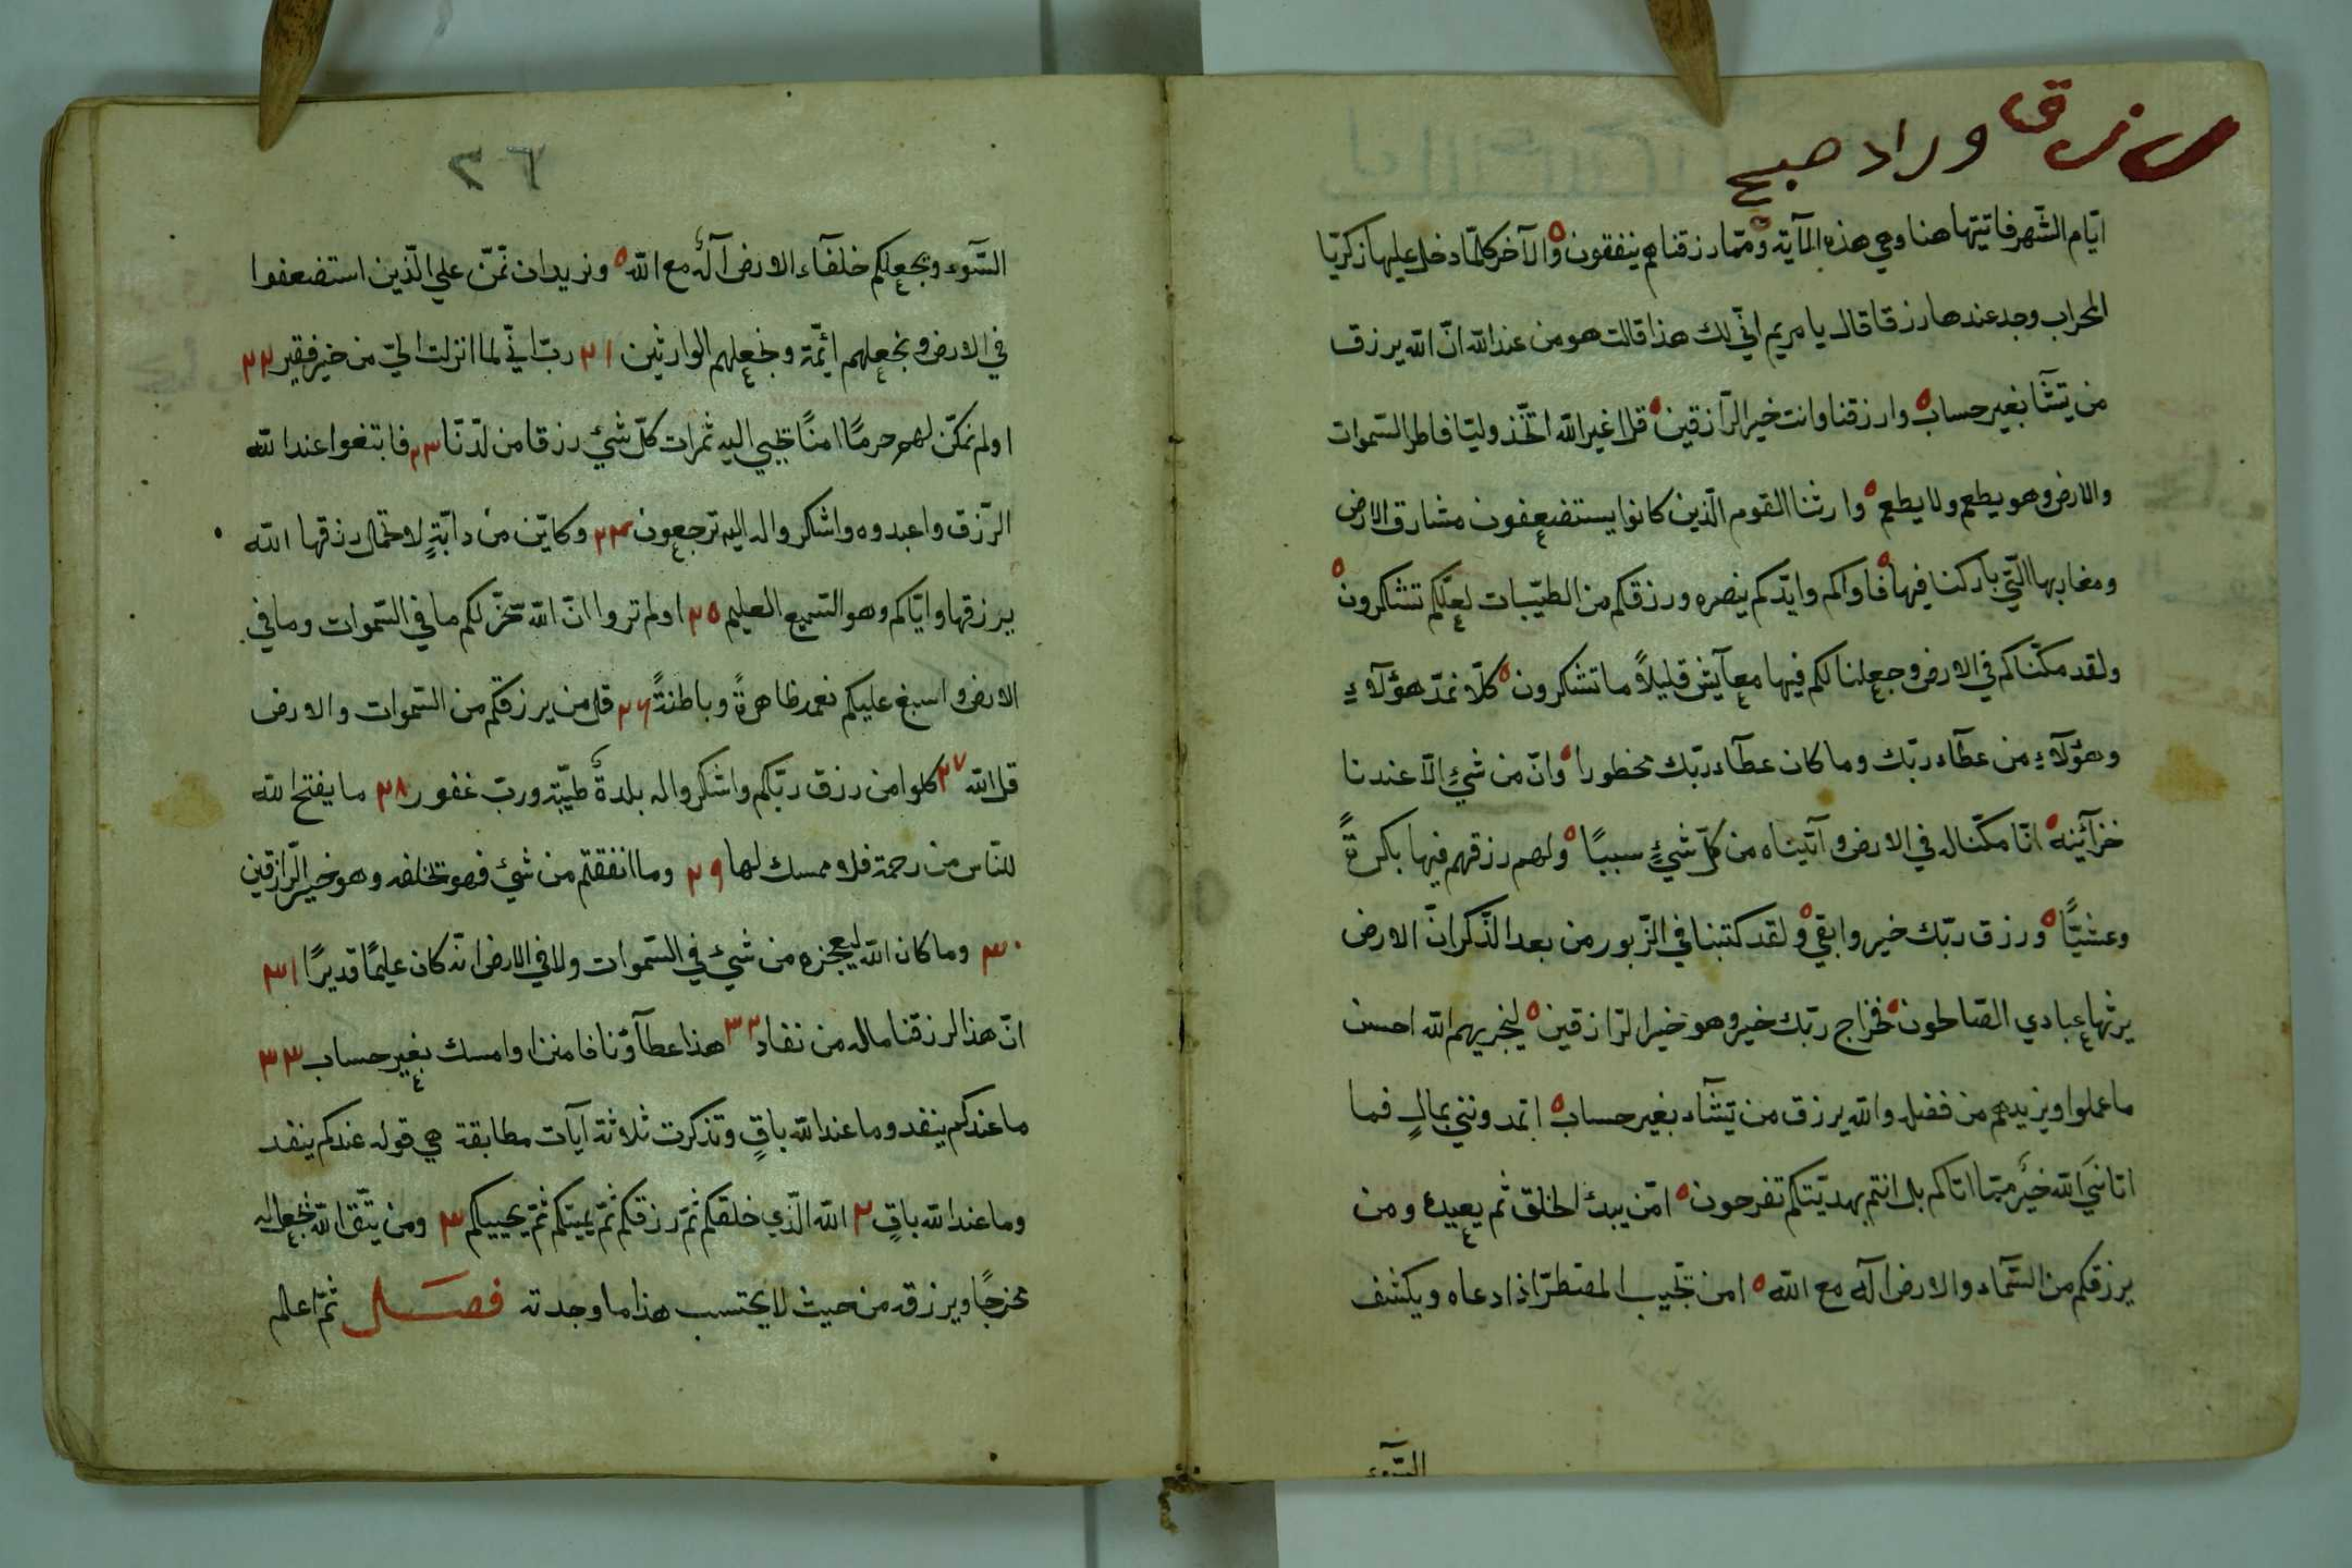 وراد صبح
ايّام الشّهر فاتيتها هنا وهي هذه المآية وممّا رزقناهم ينفقون والآخر كلمّا دخل عليها زكريّا
المحراب وجد عندها رزقا قال يا مريم انّي لك هذا قالت هو من عند الله انّ الله يرزق
من يشآ بغير حساب وارزقنا وانت خير الرّازقين قل اغير الله اتّخذ وليّا فاطر السّموات
والارض وهو يطعم ولا يطعم وارثنا القوم الّذين كانوا يستضعفون مشارق الارض
ومغاربها الّتي باركنا فيها فاواكم وايّدكم بنصره ورزقكم من الطيّبات لعلّكم تشكرون
ولقد مكّنّاكم في الارض وجعلنا لكم فيها معآيش قليلاً ما تشكرون كلّا نمدّ هؤلآءِ
وهؤلآءِ من عطآء ربّك وما كان عطآء ربّك محظورا وانّ من شيءٍ الّا عندنا
خزآئينه انّا مكّنّا له في الارض وآتيناه من كلّ شيءٍ سببًا ولهم رزقهم فيها بكرةً
وعشيًّا ورزق ربّك خير وابقي ولقد كتبنا في الزّبور من بعد الذّكر انّ الارض
يرثها عبادي الصّالحون فخراج ربّك خير وهو خير الرّازقين ليجزيهم الله احسن
ما عملوا ويزيدهم من فضله والله يرزق من يشآء بغير حساب اتمدونني بمالٍ فما
اتاني الله خير ممّا اتاكم بل انتم بهديّتكم تفرحون امّن يبدئ الخلق ثم يعيده ومن
يرزقكم من السّمآء والارض آله مع الله امن تجيب المضطرّ اذا دعاه ويكشف
السّوء
٢٦
السّوء ويجعلكم خلفآء الارض آله مع الله ونريد ان نمّن علي الّذين استضعفوا
في الارض ونجعلهم ائمّة ونجعلهم الوارثين ٢١ ربّ انّي لما انزلت اليّ من خير فقير ٢٢
اولم نمكّن لهم حرمًا امنًا تجبي اليه ثمرات كلّ شيْ رزقا من لدّنّا ٢٣ فابتغوا عند الله
الرّزق واعبدوه واشكروا له اليه ترجعون ٢٤ وكايّن من دابّةٍ لا تحمل رزقها الله
يرزقها وايّاكم وهو السّميع العليم ٢٥ اولم تروا انّ الله سخّر لكم ما في السّموات وما في
الارض واسبغ عليكم نعمه ظاهرةً وباطنةً ٢٦ قل من يرزقكم من السّموات والارض
قل الله ٢٧ كلوا من رزق ربّكم واشكروا له بلدةٌ طيّبة وربّ غفور ٢٨ ما يفتح الله
للنّاس من رحمة فلا ممسك لها ٢٩ وما انفقتم من شيْ فهو تخلفه وهو خير الرّازقين
٣٠ وما كان الله ليعجزه من شيْ في السّموات ولا في الارض انّه كان عليمًا قديرًا ٣١
انّ هذا لرزقنا ماله من نفاد ٣٢ هذا عطآؤنا فامنن او امسك بغير حساب ٣٣
ما عندكم ينفد وما عند الله باقٍ وتذكرت ثلاثة آيات مطابقة هي قوله عندكم ينفد
وما عند الله باقٍ ٢ الله الّذي خلقكم ثمّ رزقكم ثمّ يميتكم ثمّ يحييكم ٣ ومن يتّق الله يجعل له
مخرجًا ويرزقه من حيث لا يحتسب هذا ما وجدته فصل ثمّ اعلم